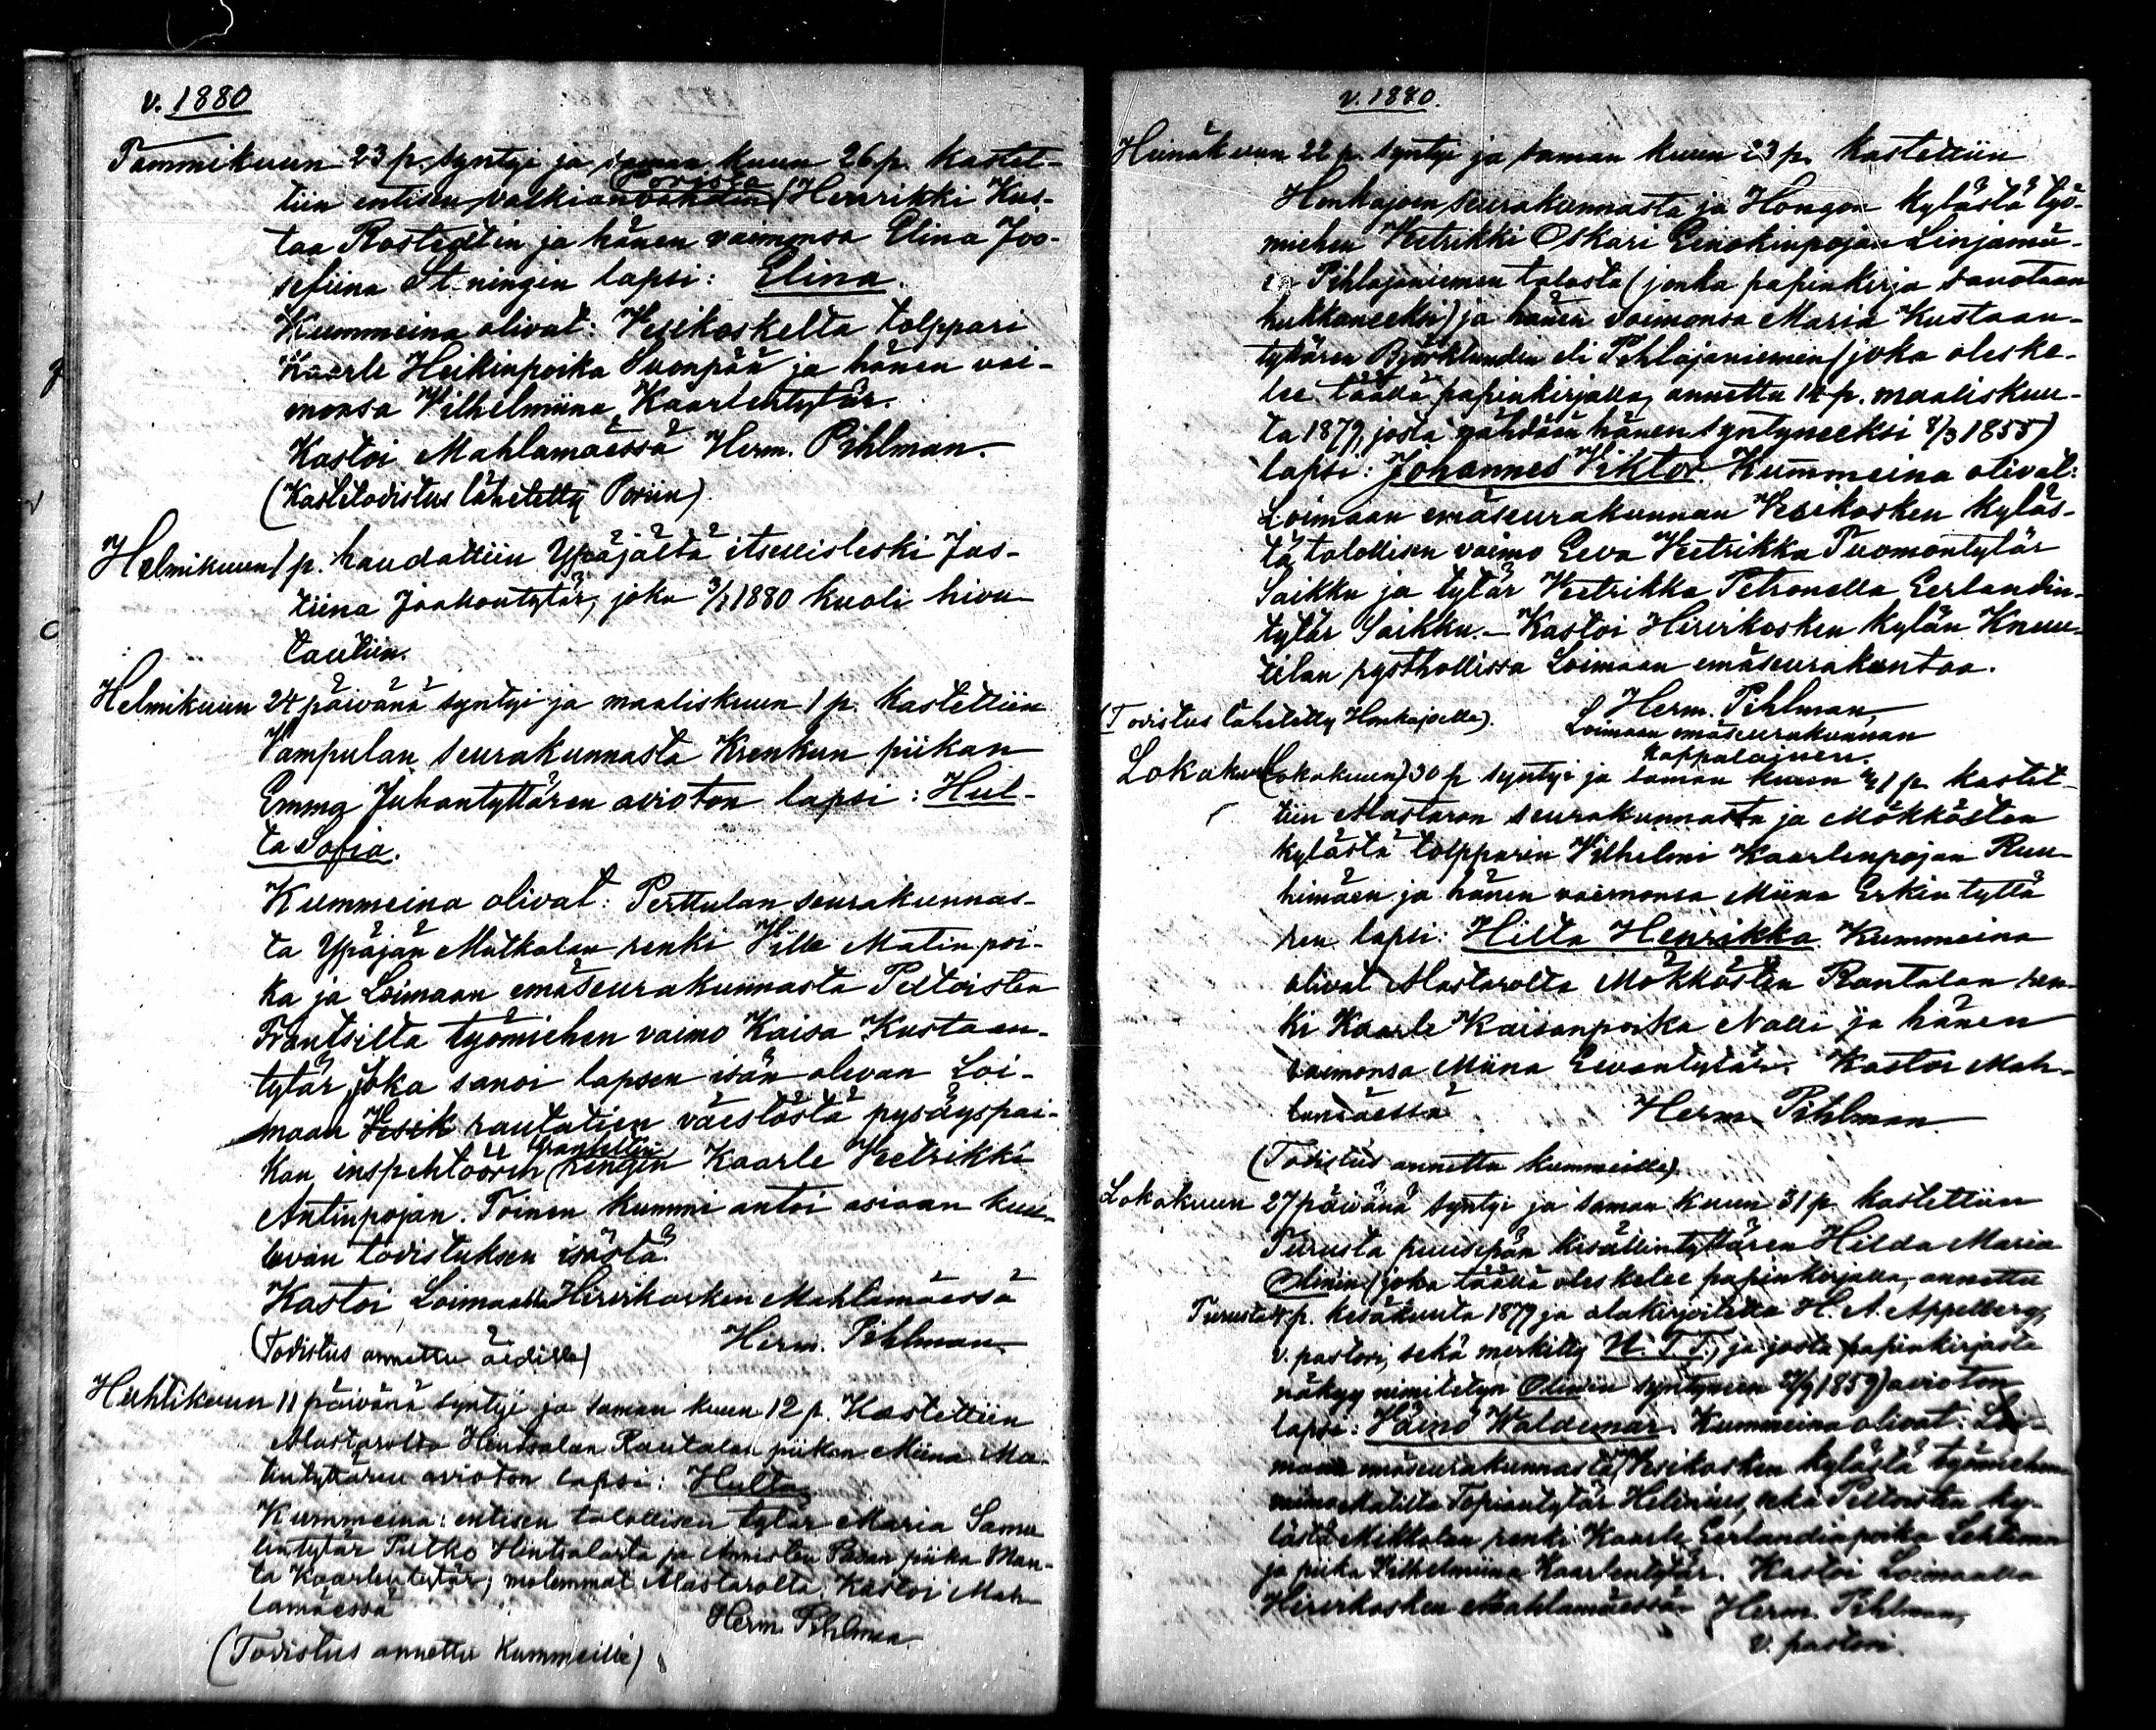 v. 1880
Tammikuun 23 p. syntyi ja saman kuun 26 p. kastet-
tiin entisen valkianvahdin Porista Henrikki Kus-
taa Rostedtin ja hänen vaimonsa Elina Joo-
sefiina St ningin lapsi: Elina.
Kummeina olivat: Vesikoskelta tolppari
Kaarle Heikinpoika Suonpää ja hänen vai-
monsa Vilhelmiina Kaarlentytär.
Kastoi Mahlamäessä Herm. Pihlman.
(Kastetodistus lähetetty Poriin)
Helmikuun 1 p. haudattiin Ypäjältä itsellisleski Jus-
tiina Jaakontytär, joka 3/1 1880 kuoli hivu-
tautiin.
Helmikuun 24 päivänä syntyi ja maaliskuun 1 p. kastettiin
Vampulan seurakunnasta Krenkun piikan
Emma Juhantyttären avioton lapsi: Hul-
ta Sofia.
Kummeina olivat: Perttulan seurakunnas-
ta Ypäjän Matkalan renki Ville Matinpoi-
ka ja Loimaan emäseurakunnasta Peltoisten
Frantsilta työmiehen vaimo Kaisa Kustaan-
tytär, joka sanoi lapsen isän olevan Loi-
maan Vesik rautatien väestöstä pysäyspai-
kan inspehtöörin rengin Kaarle Veetrikki
Antinpojan. Toinen kummi antoi asiaan kuu-
luvan todistuksen isästä.
Kastoi Loimaalla Hirvikosken Mahlamäessä
(Todistus annettu äidille) Herm. Pihlman.
Huhtikuun 11 päivänä syntyi ja saman kuun 12 p. Kastettiin
Alastarolta Hintsalan Rautalan piikan Miina Ma-
tintyttären avioton lapsi: Hulta
Kummeina: entisen talollisen tytär Maria Samu
lintytär Putko Hintsalasta ja Annisten Pasan piika Man-
ta Kaarlentytär; molemmat Alastarolta. Kastoi Mah-
lamäessä Herm. Pihlman
(Todistus annettu Kummeille)
v. 1880.
Heinäkuun 22 p. syntyi ja saman kuun 23 p. kastettiin
Honkajoen seurakunnasta ja Hongon kylästä työ-
miehen Veetrikki Oskari Einokinpojan Linjamä-
Pihlajaniemen talosta (jonka papinkirja sanotaan
hukkuneeksi) ja hänen vaimonsa Maria Kustaan-
tyttären Björklundin eli Pihlajaniemen (joka oleske-
lee täällä papinkirjalla, annettu 14 p. maaliskuu-
ta 1879, josta nähdään hänen syntyneeksi 8/3 1855)
lapsi: Johannes Viktor. Kummeina olivat:
Loimaan emäseurakunnan Vesikosken kyläs-
tä talollisen vaimo Eeva Veetrikka Tuomontytär
Saikku ja tytär Veetrikka Petronella Eerlandin-
tytär Saikku. – Kastoi Hirvikosken kylän Knuu-
tilan rysthollissa Loimaan emäseurakuntaa.
(Todistus lähetetty Honkajoelle). Herm. Pihlman,
Loimaan emäseurakunnan
kappalainen.
Lokakuun (Lokakuun) 30 p. syntyi ja saman kuun 31 p. kastet-
tiin Alastaron seurakunnasta ja Mökkösten
kylästä tolpparin Vilhelmi Kaarlenpojan Ruu-
himäen ja hänen vaimonsa Miina Erkintyttä
ren lapsi: Hilta Henrikka. Kummeina
olivat Alastarolta Mökkösten Rautalan ren-
ki Kaarle Kaisanpoika Nalli ja hänen
vaimonsa Miina Eevantytär. Kastoi Mah-
lamäessä Herm. Pihlman
(Todistus annettu kummeille).
Lokakuun 27 päivänä syntyi ja saman kuun 31 p. kastettiin
Turusta puusepän kisällintyttären Hilda Maria
Olinin (joka täällä oleskelee papinkirjalla, annettu
Turusta p. kesäkuuta 1879 ja alakirjoitettu H. A. Appelberg,
v. pastori, sekä merkitty N. T. T., ja josta papinkirjasta
näkyy nimitetyn Olinin syntyneen 1859) avioton
lapsi: Väinö Waldemar. Kummeina olivat: Loi-
maan emäseurakunnasta Vesikosken kylästä työmiehen
vaimo Matilta Topiantytär Helenius, sekä Peltoisten ky-
lästä Mikkolan renki Kaarle Eerlandinpoika Lehtinen
ja piika Vilhelmiina Kaarlentytär. Kastoi Loimaalla
Hirvikosken Mahlamäessä Herm. Pihlman,
v. pastori.